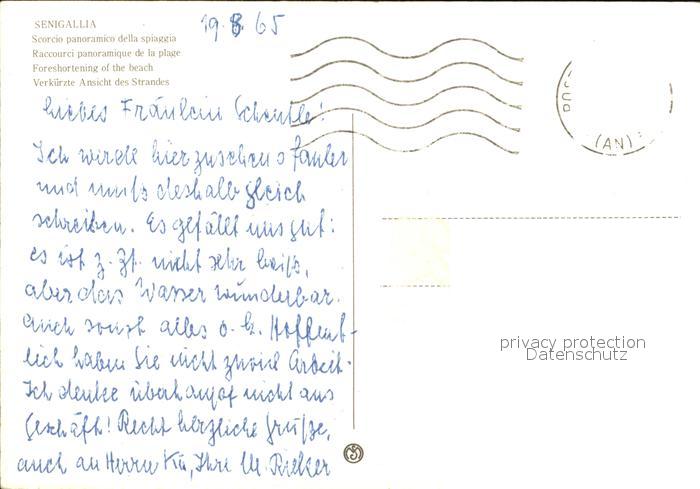 SENIGALLIA
Scorcio panoramico della spiaggia
Raccourci panoramique de la plage
Foreshortening of the beach
Verkürzte Ansicht des Strandes
19.8.65
Liebes Fräulein Scheufle!
Ich werde hier zusehens fauler
und muß deshalb gleich
schreiben. Es gefällt uns gut:
es ist z. Zt. nicht sehr heiß,
aber das Wasser wunderbar.
Auch sonst alles o.k. Hoffent-
lich haben Sie nicht zuviel Arbeit.
Ich denke überhaupt nicht ans
Geschäft! Recht herzliche Grüße,
auch an Herrn Kü, Ihre M. Rieker
(AN)
privacy protection
Datenschutz